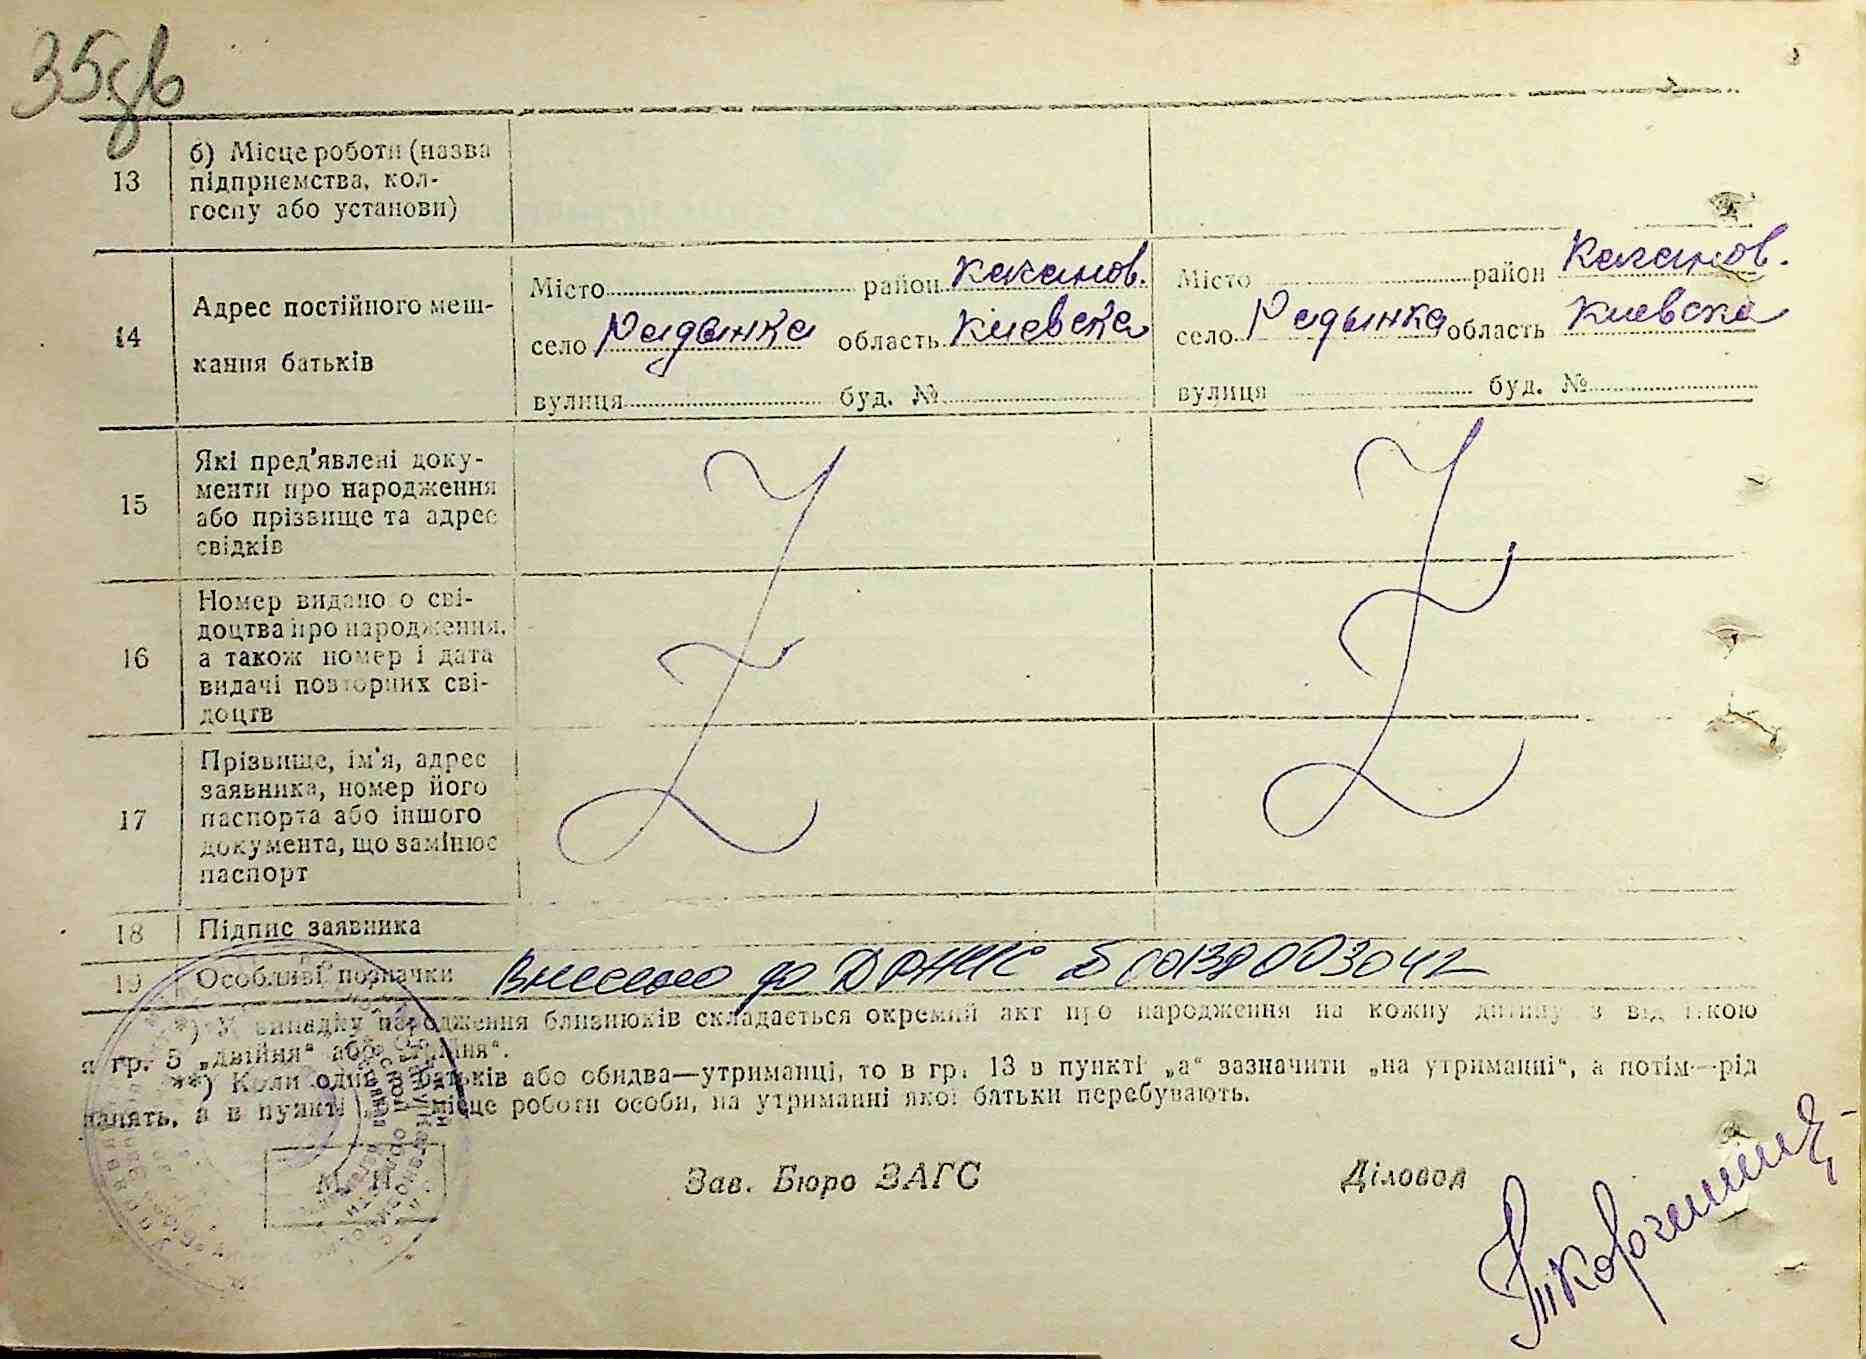 35зв
13
б) Місце роботи (назва
підприємства, кол-
госпу або установи)
14
Адрес постійного меш-
кання батьків
Місто район Каганов.
село Радынка область Киевска
вулиця буд. №
Місто район Каганов.
село Радынка область Киевска
вулиця буд. №
15
Які пред'явлені доку-
менти про народження
або прізвище та адрес
свідків
16
Номер видано о сві-
доцтва про народження,
а також номер і дата
видачі повторних сві-
доцтв
17
Прізвище, ім'я, адрес
заявника, номер його
паспорта або іншого
документа, що замінює
паспорт
18
Підпис заявника
19
Особливі позначки
Внесено до ДРАЦС 00138003042
*) У випадку народження близнюків складається окремий акт про народження на кожну дитину з від іткою
в гр. 5 „двійня“ або
**) Коли один батьків або обидва—утриманці, то в гр. 13 в пункті „а“ зазначити „на утриманні“, а потім—рід
занять, а в пункті місце роботи особи, на утриманні якої батьки перебувають.
М. П.
Зав. Бюро ЗАГС
Діловод